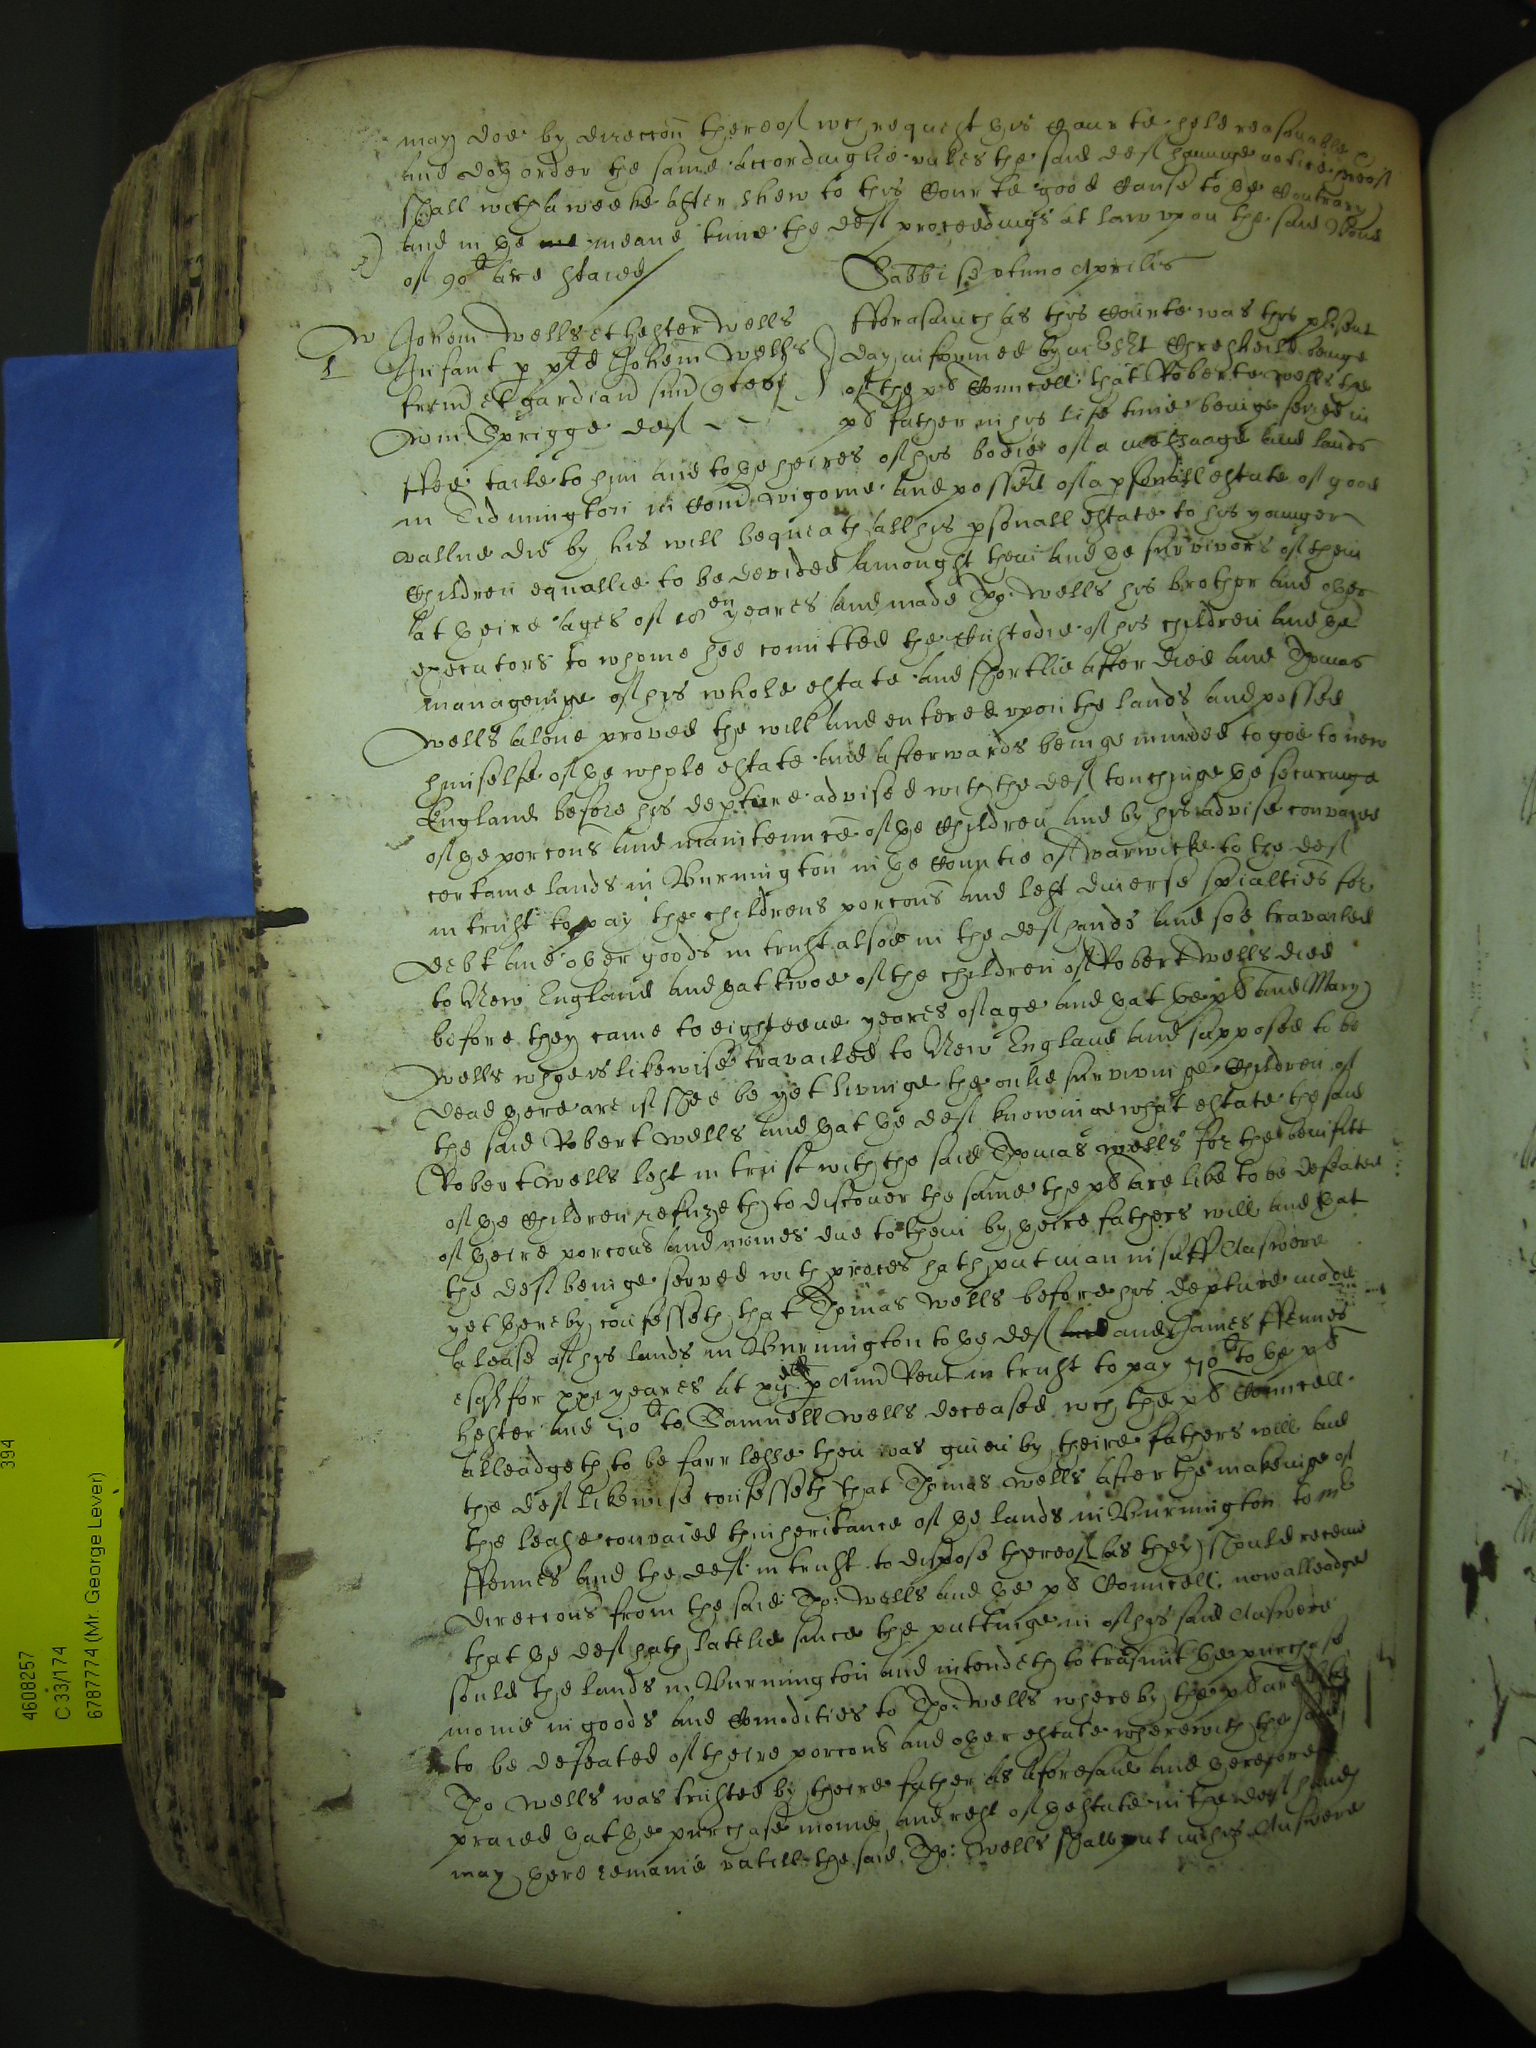 may doe by direccon thereof wch request this Courte held reasonable
and doth order the same accordinglie unles the said deft havinge notice hereof
shall within a weeke after shew to this Courte good Cause to ye Contrary
and in ye meane time the deft proceedings at law upon the said Bond
of 90li are staied
Sabbi septimo Aprilis
W Johem Wells et Hester Wells
1 Infant p pd Johem Wells
frem et gardian suu quer
Wm Sprigge deft
Fforasmuch as this Courte was this psent
day informed by mr Chresheild beinge
of the pl Councell that Roberte Wells the
pl father in his life time beinge seized in
ffee taile to him and to ye heires of his bodie of a messuage and lands
in Tidmington in Com Wigorne and possed of a psonall estate of good
vallue did by his will bequeath all his psonall estate to his younger
Children equallie to be devided amongst them and ye survivors of them
at yeire ages of 18en yeares and made Tho: Wells his brother and other
executors to whome hee comitted the Custodie of his children and ye
manageinge of his whole estate and shortlie after died and Thomas
Wells alone proved the will and entered upon the lands and possed
himselfe of ye whole estate and afterwards beinge minded to goe to new
England before his depture advised with the deft touchinge ye securinge
of ye porcons and maintennce of ye Children and by his advise convaied
certaine lands in Burmington in ye Countie of Warwicke to the deft
in trust to pay the childrens porcons and left diverse spialties for
debt and other goods in trust alsoe in the deft hands and soe travailed
to New England and yat twoe of the children of Robert Wells died
before they came to eighteene yeares of age and yat ye pl and Mary
Wells whoe is likewise travailed to New England and supposed to be
dead yere are if shee be yet livinge the onlie survivinge Children of
the said Robert Wells and yat ye deft knowinge what estate the said
Robert Wells left in trust with the said Thomas Wells for the benifitt
of ye Children refuzeth to discover the same the pl are like to be defeated
of yeire porcons and monies due to them by yeire fathers will and yat
the deft beinge served with proces hath put in an insuff Answere
yet thereby confesseth that Thomas Wells before his depture made
a lease of his lands in Burmington to ye deft and James ffennes
esqr for xxi yeares at xijd p Ann Rent in trust to pay 70li to ye pl
Hester and 70li to Samuell Wells deceased wch the pl Councell
alleadgeth to be farr lesse then was given by theire fathers will and
the deft likewise confesseth that Thomas Wells after the makeinge of
the lease convaied thinheritance of ye lands in Burmington to mr
ffennes and the deft in trust to dispose thereof as they should receave
direccons from the said Tho: Wells and ye pl Councell now alleadge
that ye deft hath latelie since the puttinge in of his said Answere
sould the lands in Burmington and intendeth to trasmit ye purchase
monie in goods and Comodities to Tho: Wells whereby the pl are like
to be defeated of theire porcons and other estate wherewith the said
Tho Wells was trusted by theire father as aforesaid and therefore
praied yat ye purchase monie and rest of ye estate in the deft hands
may there remaine untill the said Tho: Wells shall put in his Answere
4608257 394
C 33/174
6787774 (Mr. George Lever)